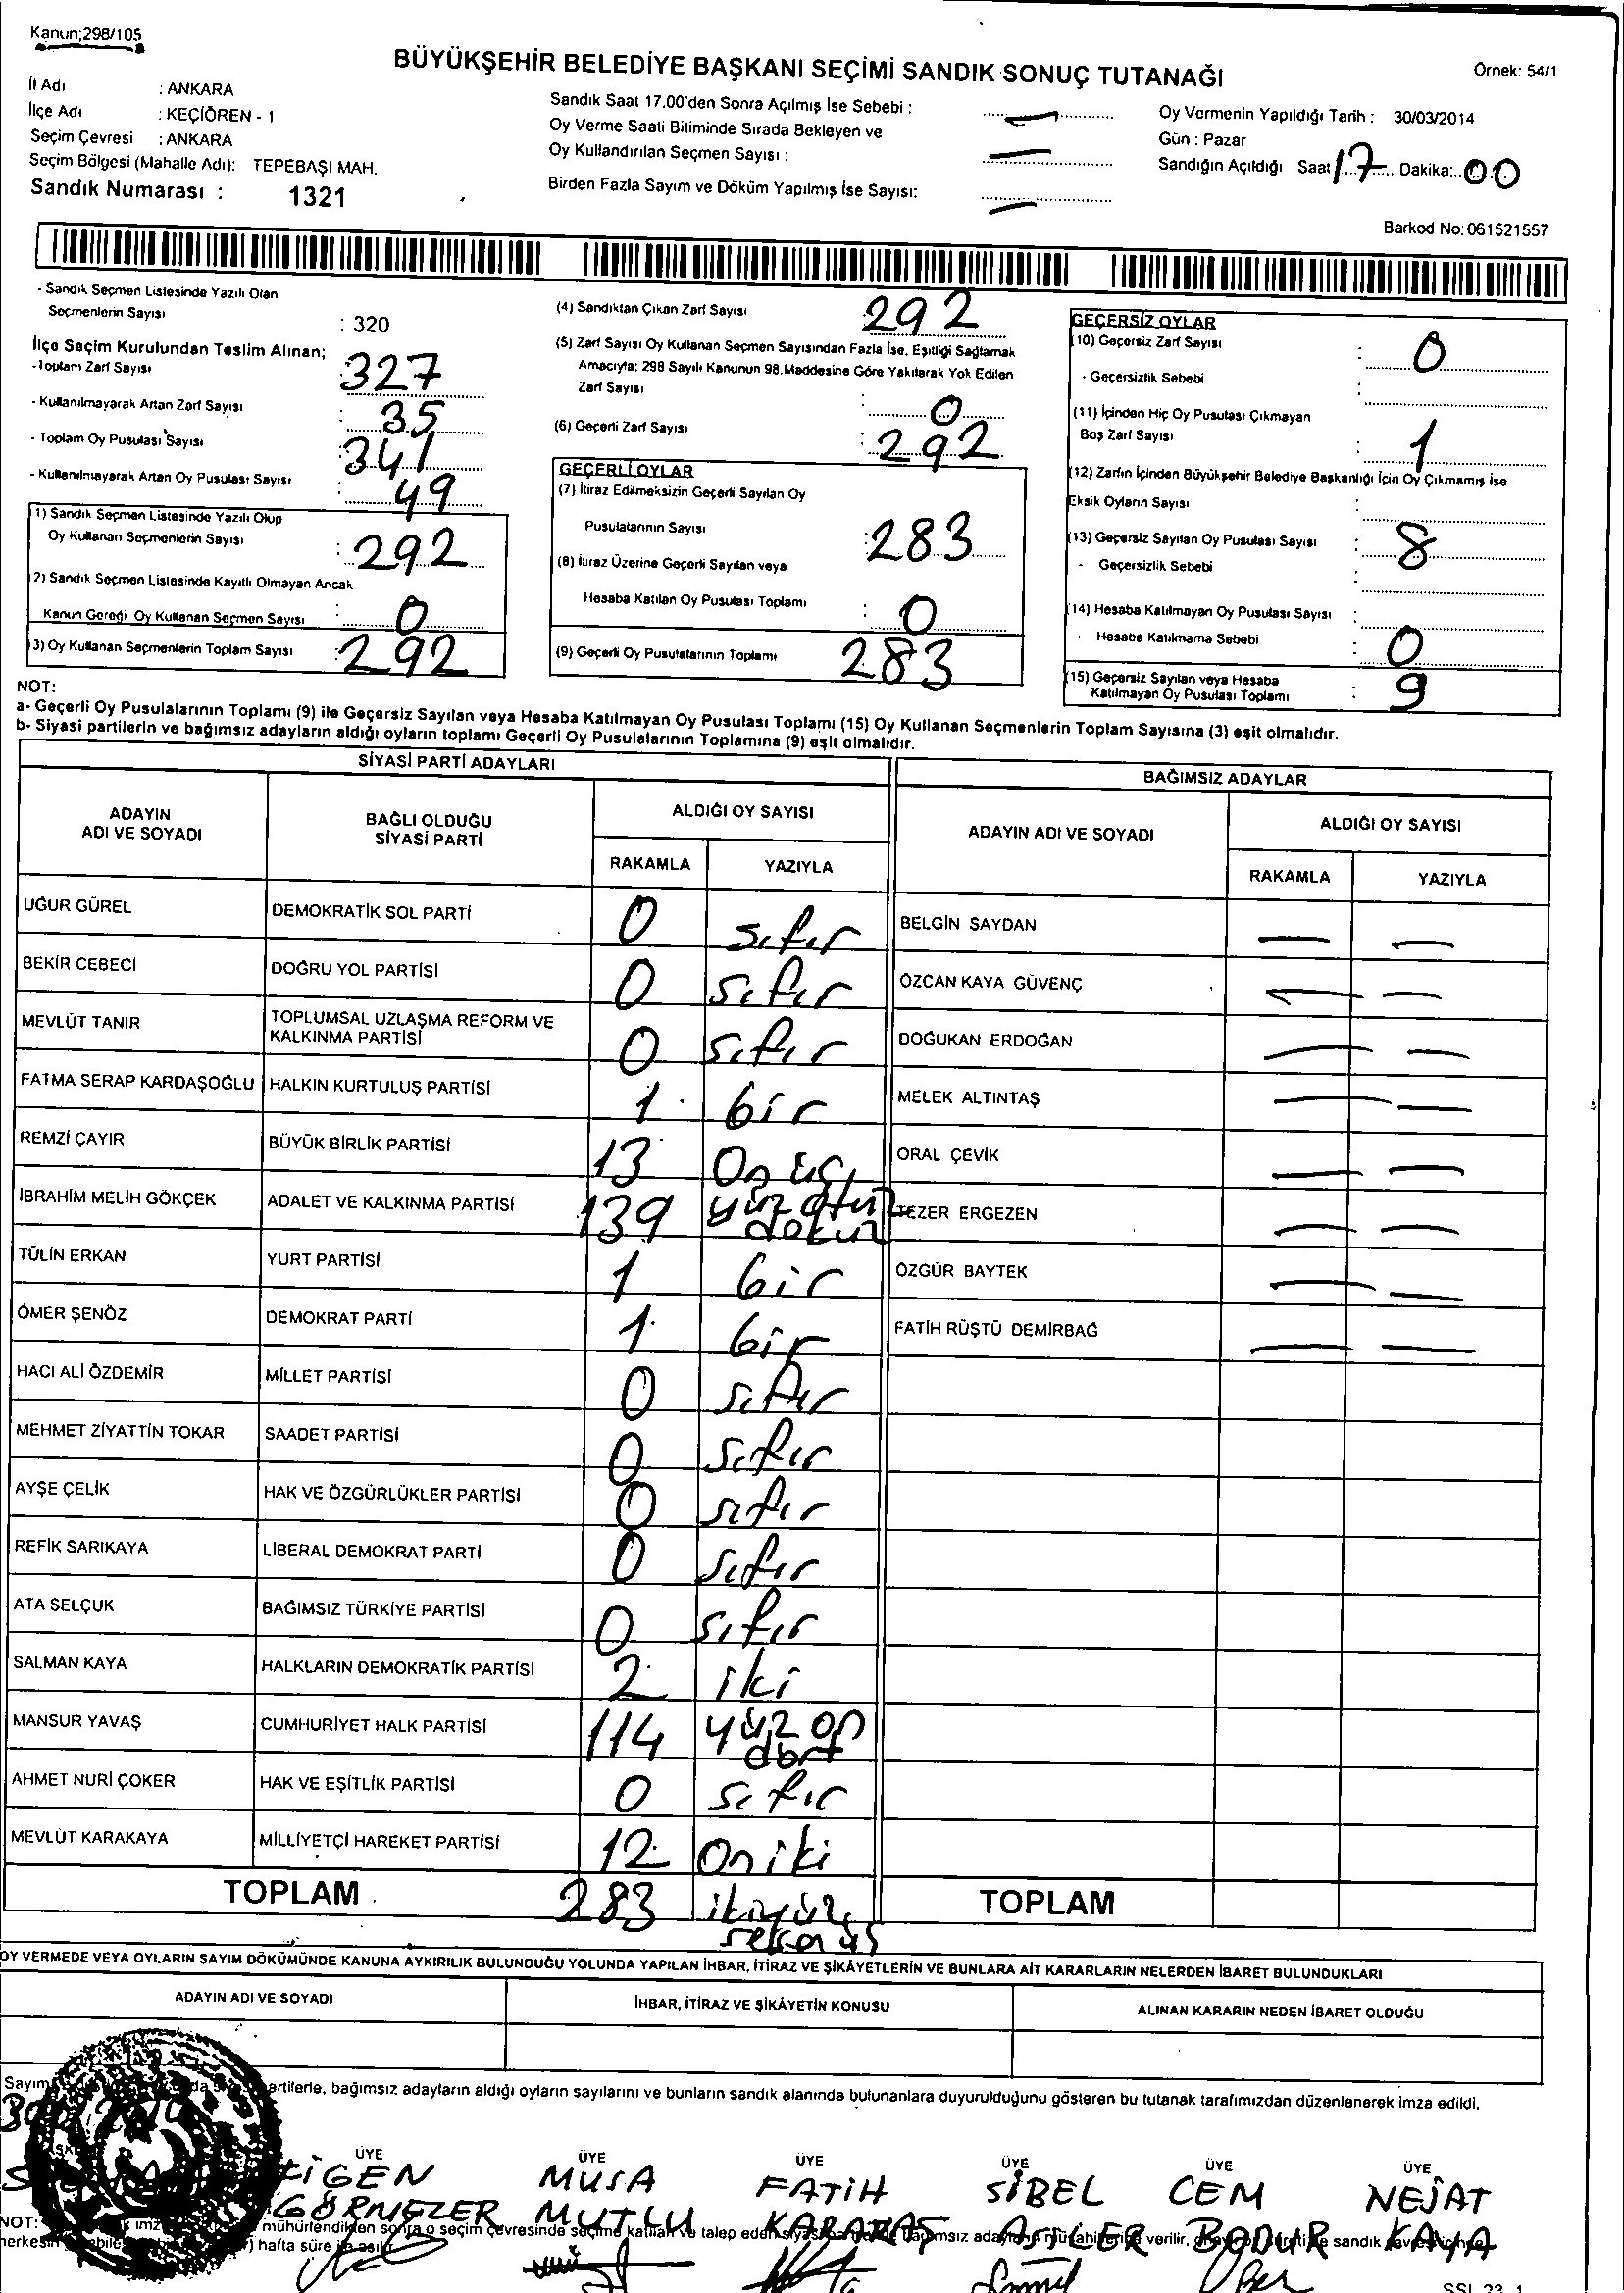 Kanun;298/105
BÜYÜKŞEHİR BELEDİYE BAŞKANI SEÇİMİ SANDIK SONUÇ TUTANAĞI
Örnek: 54/1
İl Adı : ANKARA
İlçe Adı : KEÇİÖREN - 1
Seçim Çevresi : ANKARA
Seçim Bölgesi (Mahalle Adı): TEPEBAŞI MAH.
Sandık Numarası : 1321
Sandık Saat 17.00'den Sonra Açılmış İse Sebebi :
Oy Verme Saati Bitiminde Sırada Bekleyen ve
Oy Kullandırılan Seçmen Sayısı :
Birden Fazla Sayım ve Döküm Yapılmış İse Sayısı:
Oy Vermenin Yapıldığı Tarih : 30/03/2014
Gün : Pazar
Sandığın Açıldığı Saat 17 Dakika: 00
Barkod No: 061521557
- Sandık Seçmen Listesinde Yazılı Olan
Seçmenlerin Sayısı : 320
İlçe Seçim Kurulundan Teslim Alınan;
-Toplam Zarf Sayısı : 327
- Kullanılmayarak Artan Zarf Sayısı : 35
- Toplam Oy Pusulası Sayısı : 341
- Kullanılmayarak Artan Oy Pusulası Sayısı : 49
1) Sandık Seçmen Listesinde Yazılı Olup
Oy Kullanan Seçmenlerin Sayısı : 292
2) Sandık Seçmen Listesinde Kayıtlı Olmayan Ancak
Kanun Gereği Oy Kullanan Seçmen Sayısı : 0
3) Oy Kullanan Seçmenlerin Toplam Sayısı : 292
(4) Sandıktan Çıkan Zarf Sayısı 292
(5) Zarf Sayısı Oy Kullanan Seçmen Sayısından Fazla İse, Eşitliği Sağlamak
Amacıyla; 298 Sayılı Kanunun 98.Maddesine Göre Yakılarak Yok Edilen
Zarf Sayısı : 0
(6) Geçerli Zarf Sayısı : 292
GEÇERLİ OYLAR
(7) İtiraz Edilmeksizin Geçerli Sayılan Oy
Pusulalarının Sayısı : 283
(8) İtiraz Üzerine Geçerli Sayılan veya
Hesaba Katılan Oy Pusulası Toplamı : 0
(9) Geçerli Oy Pusulalarının Toplamı 283
GEÇERSİZ OYLAR
(10) Geçersiz Zarf Sayısı : 0
- Geçersizlik Sebebi :
(11) İçinden Hiç Oy Pusulası Çıkmayan
Boş Zarf Sayısı : 1
(12) Zarfın İçinden Büyükşehir Belediye Başkanlığı İçin Oy Çıkmamış ise
Eksik Oyların Sayısı :
(13) Geçersiz Sayılan Oy Pusulası Sayısı : 8
- Geçersizlik Sebebi :
(14) Hesaba Katılmayan Oy Pusulası Sayısı :
- Hesaba Katılmama Sebebi : 0
(15) Geçersiz Sayılan veya Hesaba
Katılmayan Oy Pusulası Toplamı : 9
NOT:
a- Geçerli Oy Pusulalarının Toplamı (9) ile Geçersiz Sayılan veya Hesaba Katılmayan Oy Pusulası Toplamı (15) Oy Kullanan Seçmenlerin Toplam Sayısına (3) eşit olmalıdır.
b- Siyasi partilerin ve bağımsız adayların aldığı oyların toplamı Geçerli Oy Pusulalarının Toplamına (9) eşit olmalıdır.
SİYASİ PARTİ ADAYLARI
ADAYIN ADI VE SOYADI BAĞLI OLDUĞU SİYASİ PARTİ ALDIĞI OY SAYISI
RAKAMLA YAZIYLA
UĞUR GÜREL DEMOKRATİK SOL PARTİ 0 sıfır
BEKİR CEBECİ DOĞRU YOL PARTİSİ 0 sıfır
MEVLÜT TANIR TOPLUMSAL UZLAŞMA REFORM VE KALKINMA PARTİSİ 0 sıfır
FATMA SERAP KARDAŞOĞLU HALKIN KURTULUŞ PARTİSİ 1 bir
REMZİ ÇAYIR BÜYÜK BİRLİK PARTİSİ 13 On üç
İBRAHİM MELİH GÖKÇEK ADALET VE KALKINMA PARTİSİ 139 yüz otuz dokuz
TÜLİN ERKAN YURT PARTİSİ 1 bir
ÖMER ŞENÖZ DEMOKRAT PARTİ 1 bir
HACI ALİ ÖZDEMİR MİLLET PARTİSİ 0 sıfır
MEHMET ZİYATTİN TOKAR SAADET PARTİSİ 0 sıfır
AYŞE ÇELİK HAK VE ÖZGÜRLÜKLER PARTİSİ 0 sıfır
REFİK SARIKAYA LİBERAL DEMOKRAT PARTİ 0 sıfır
ATA SELÇUK BAĞIMSIZ TÜRKİYE PARTİSİ 0 sıfır
SALMAN KAYA HALKLARIN DEMOKRATİK PARTİSİ 2 iki
MANSUR YAVAŞ CUMHURİYET HALK PARTİSİ 114 yüz on dört
AHMET NURİ ÇOKER HAK VE EŞİTLİK PARTİSİ 0 sıfır
MEVLÜT KARAKAYA MİLLİYETÇİ HAREKET PARTİSİ 12 On iki
TOPLAM 283
BAĞIMSIZ ADAYLAR
ADAYIN ADI VE SOYADI ALDIĞI OY SAYISI
RAKAMLA YAZIYLA
BELGİN SAYDAN
ÖZCAN KAYA GÜVENÇ
DOĞUKAN ERDOĞAN
MELEK ALTINTAŞ
ORAL ÇEVİK
TEZER ERGEZEN
ÖZGÜR BAYTEK
FATİH RÜŞTÜ DEMİRBAĞ
TOPLAM
OY VERMEDE VEYA OYLARIN SAYIM DÖKÜMÜNDE KANUNA AYKIRILIK BULUNDUĞU YOLUNDA YAPILAN İHBAR, İTİRAZ VE ŞİKÂYETLERİN VE BUNLARA AİT KARARLARIN NELERDEN İBARET BULUNDUKLARI
ADAYIN ADI VE SOYADI İHBAR, İTİRAZ VE ŞİKÂYETİN KONUSU ALINAN KARARIN NEDEN İBARET OLDUĞU
Sayım partilerle, bağımsız adayların aldığı oyların sayılarını ve bunların sandık alanında bulunanlara duyurulduğunu gösteren bu tutanak tarafımızdan düzenlenerek imza edildi.
ÜYE ÜYE ÜYE ÜYE ÜYE ÜYE
MUSA FATİH SİBEL CEM NEJAT
GÖRMEZER MUTLU KARATAŞ BODUR KAYA
NOT: mühürlendikten sonra o seçim çevresinde seçime katılan ve talep eden verilir, sandık
hafta süre
SSI 23 1